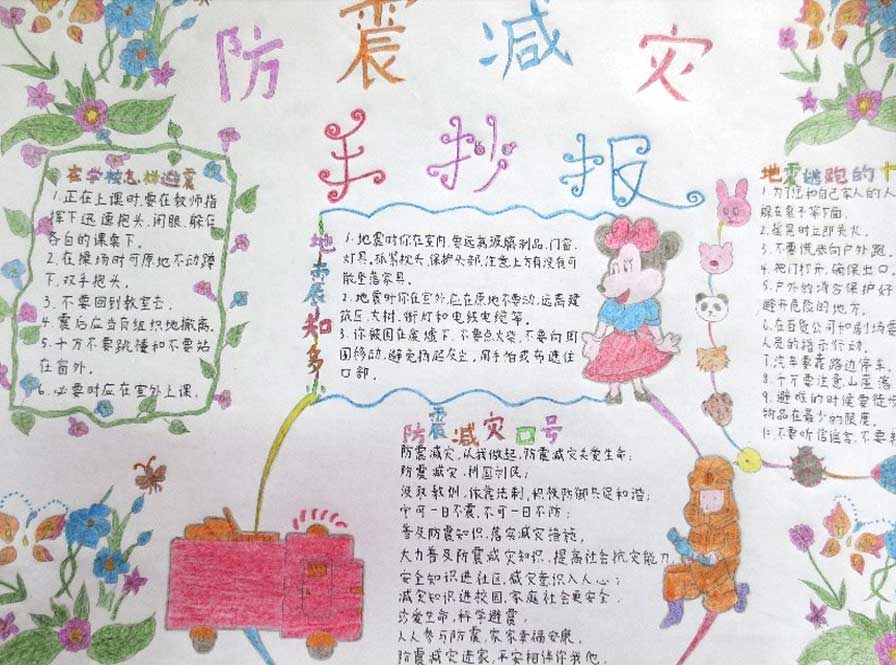 防震减灾
手抄报
在学校怎样避震
1.正在上课时,要在教师指
挥下迅速抱头、闭眼、躲在
各自的课桌下。
2.在操场时可原地不动蹲
下,双手抱头。
3.不要回到教室去。
4.震后应当有组织地撤离。
5.千万不要跳楼和不要站
在窗外。
6.必要时应在室外上课。
地震知多
1.地震时你在室内,要远离玻璃制品、门窗、
灯具。抓紧枕头,保护头部,注意上方有没有可
能坠落家具。
2.地震时你在室外,应在原地不要动,远离建
筑区、大树、街灯和电线电缆等。
3.你被困在废墟下,不要点火柴,不要向周
围移动,避免扬起灰尘,用手怕或布遮住
口部。
防震减灾口号
防震减灾,从我做起,防震减灾关爱生命;
防震减灾,利国利民;
汲取教训,依靠法制,积极防御共促和谐;
宁可一日不震,不可一日不防;
普及防震知识,落实减灾措施。
大力普及防震减灾知识,提高社会抗灾能力
安全知识进社区,减灾意识入人心;
减灾知识进校园,家庭社会更安全。
珍爱生命,科学避震。
人人参与防震,家家幸福安康。
防震减灾进家,平安相伴你我他。
地震逃跑的十
1.为了您和自己家人的人
躲在桌子等下面.
2.摇晃时立即关火.
3.不要慌张向户外跑.
4.把门打开,确保出口
5.户外的场合保护好
避开危险的地方.
6.在百货公司和剧场要
人员的指示行动.
7.汽车要靠路边停车.
8.千万要注意山崖落
9.避难的时候要徒步
物品在最少的限度.
10.不要听信谣言,不要轻